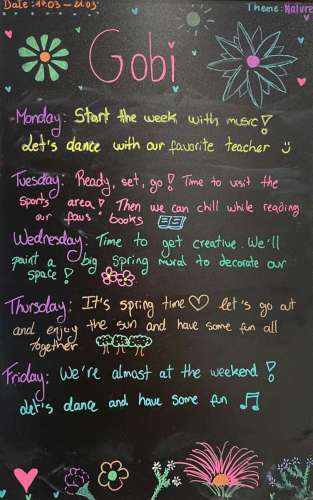 Date: 17.03 - 21.03
Theme: Nature
Gobi
Monday: Start the week with music!
Let's dance with our favorite teacher
Tuesday: Ready, set, go! Time to visit the
sports area! Then we can chill while reading
our favs books
Wednesday: Time to get creative. We'll
paint a big spring mural to decorate our
space!
Thursday: It's spring time ♡ let's go out
and enjoy the sun and have some fun all
together
Friday: We're almost at the weekend!
Let's dance and have some fun ♫